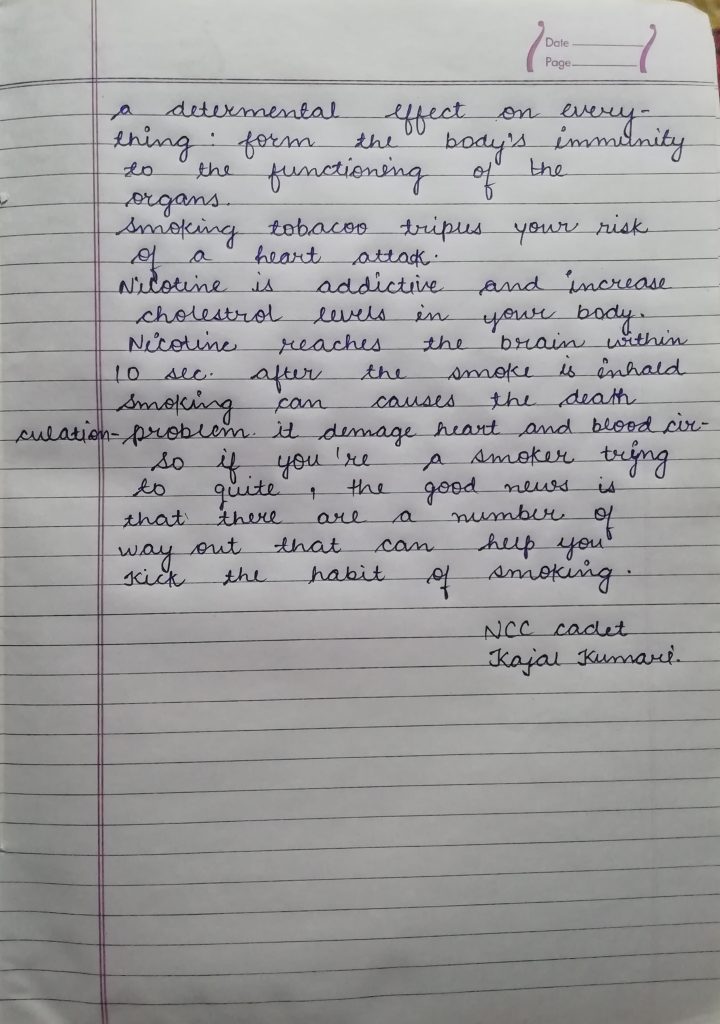 Date
Page
a determental effect on every-
thing : form the body's immunity
to the functioning of the
organs.
Smoking tobacoo triples your risk
of a heart attak.
Nicotine is addictive and increase
cholestrol levels in your body.
Nicotine reaches the brain within
10 sec. after the smoke is inhald
Smoking can causes the death
culation- problem. it demage heart and blood cir-
So if you're a smoker trying
to quite , the good news is
that there are a number of
way out that can help you
Kick the habit of smoking.
NCC cadet
Kajal Kumari.